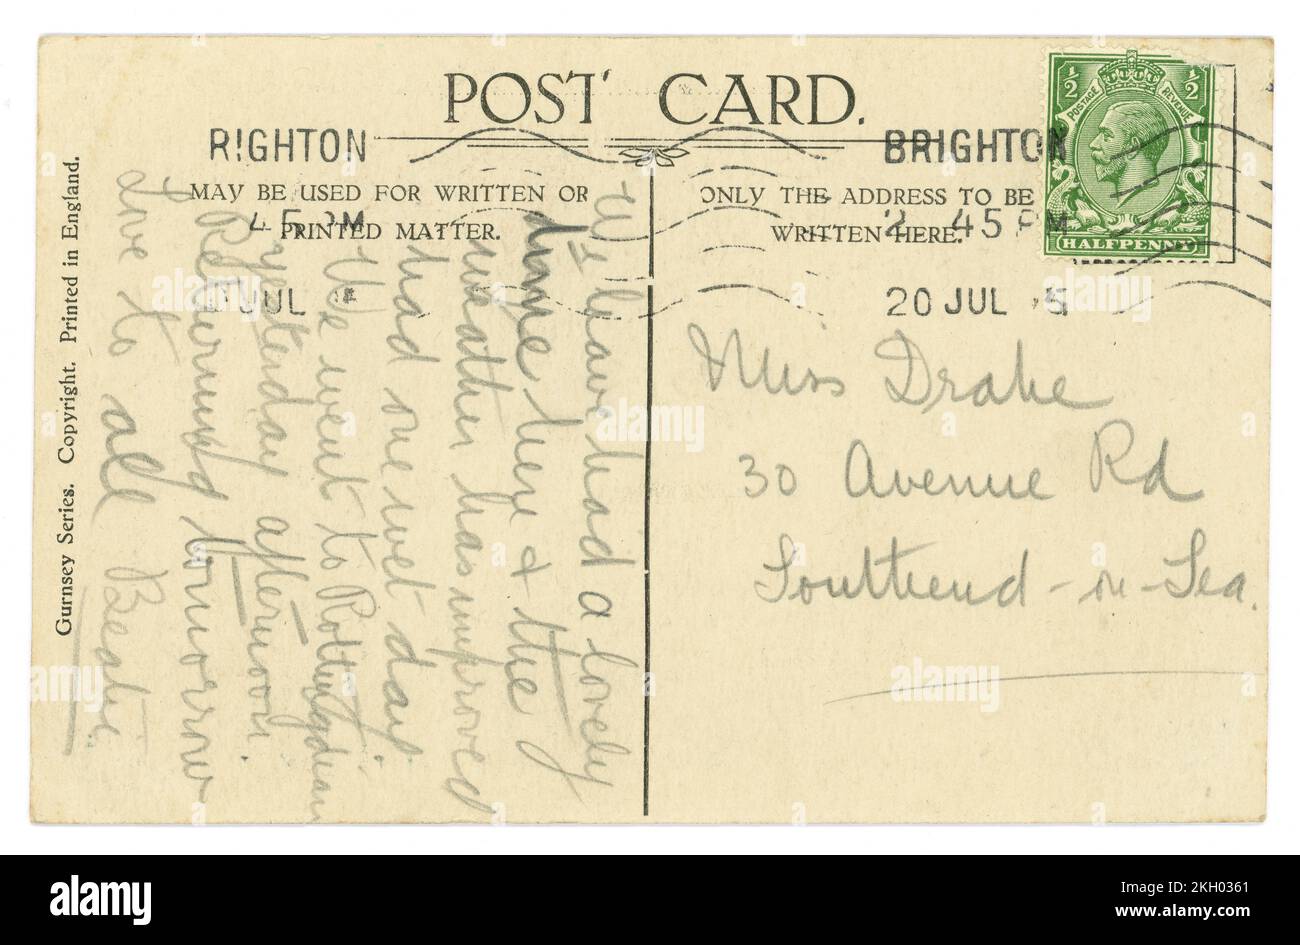 POST CARD.
RIGHTON
BRIGHTON
MAY BE USED FOR WRITTEN OR
PRINTED MATTER.
ONLY THE ADDRESS TO BE
WRITTEN HERE.
45 PM
2 45 PM
JUL
20 JUL 5
½ ½
POSTAGE REVENUE
HALFPENNY
Miss Drake
30 Avenue Rd
Southend-on-Sea.
We have had a lovely
time here & the
weather has improved
had one wet day.
We went to Rottingdean
yesterday afternoon.
Returning tomorrow
Love to all Beatie
Gurnsey Series. Copyright. Printed in England.
alamy
Image ID: 2KH0361
www.alamy.com